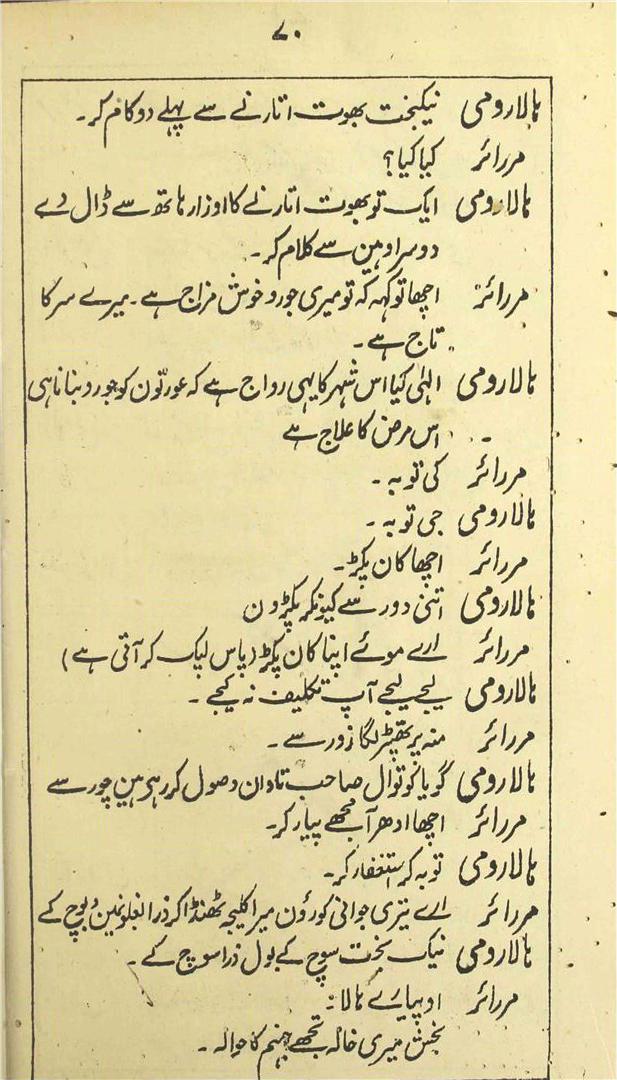 ۷۰
مالارومی نیکبخت بھوت اتارنے سے پہلے دو کام کر۔
مررائر کیا کیا؟
مالارومی ایک تو بھوت اتارنے کا اوزار ہاتھ سے ڈال دے
دوسرا وہن سے کلام کر۔
مررائر اچھا تو کہہ کہ تو میری جورو خوش مزاج ہے۔ میرے سر کا
تاج ہے۔
مالارومی الہٰی کیا اس شہر کا یہی رواج ہے کہ عورتون کو جورو بنانا ہی
اس مرض کا علاج ہے
مررائر کی توبہ۔
مالارومی جی توبہ۔
مررائر اچھا کان پکڑ۔
مالارومی اتنی دور سے کیونکر پکڑون
مررائر ارے موئے اپنا کان پکڑ (پاس لپک کر آتی ہے)
مالارومی لیجے لیجے آپ تکلیف نہ کیجے۔
مررائر منہ پر تھپڑ لگا زور سے۔
مالارومی گویا کوتوال صاحب تاوان وصول کر رہی ہین چور سے
مررائر اچھا ادھر آ مجھے پیار کر۔
مالارومی توبہ کر استغفار کر۔
مررائر اے تیری جوانی کو رؤن میرا کلیجہ ٹھنڈا کر ذرا بغلونمین دبوچ کے
مالارومی نیک بخت سوچ کے بول ذرا سوچ کے۔
مررائر او پیارے مالا۔
بخش میری خالہ تجھے جہنم کا حوالہ۔